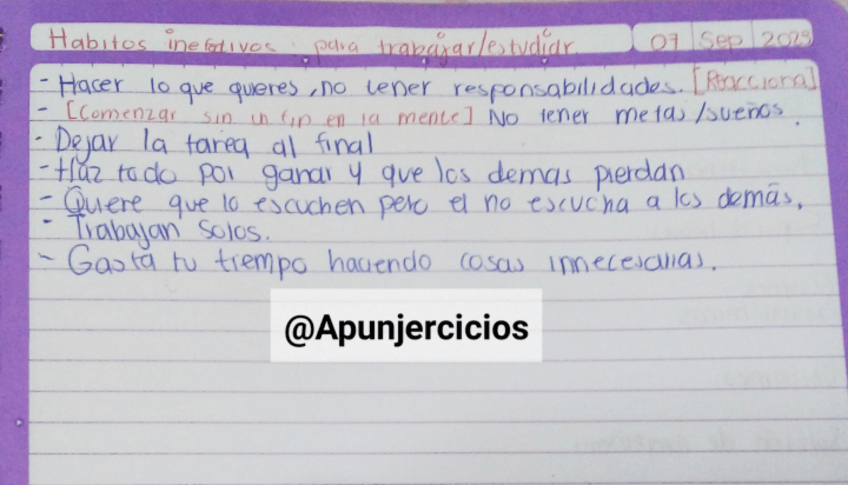 Habitos inefectivos : para trabajar/estudiar 07 Sep 2023
- Hacer lo que quieres, no tener responsabilidades. [Reacciona]
- [Comenzar sin un fin en la mente] No tener metas/sueños.
- Dejar la tarea al final
- Haz todo por ganar y que los demas pierdan
- Quiere que lo escuchen pero el no escucha a los demás.
- Trabajan solos.
- Gasta tu tiempo haciendo cosas innecesarias.
@Apunjercicios